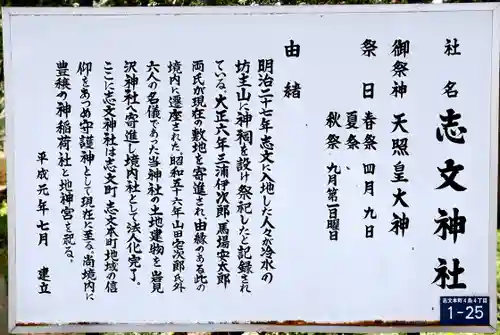 社名 志文神社
御祭神 天照皇大神
祭日 春祭 四月九日
夏祭
秋祭 九月第一日曜日
由緒
明治二十七年志文に入地した人々が冷水の
坊主山に神祠を設け祭祀したと記録され
ている。大正六年三浦伊次郎、馬場安太郎
両氏が現在の敷地を寄進され、由緒のある此の
境内に遷座された。昭和五十六年山田宅次郎氏外
六人の名儀であった当神社の土地建物を岩見
沢神社へ寄進し境内社として法人化完了。
ここに志文神社は志文町、志文本町地域の信
仰をあつめ守護神として現在に至る。尚境内に
豊穣の神稲荷社と地神宮を祀る。
平成元年七月 建立
志文本町4条4丁目
1-25